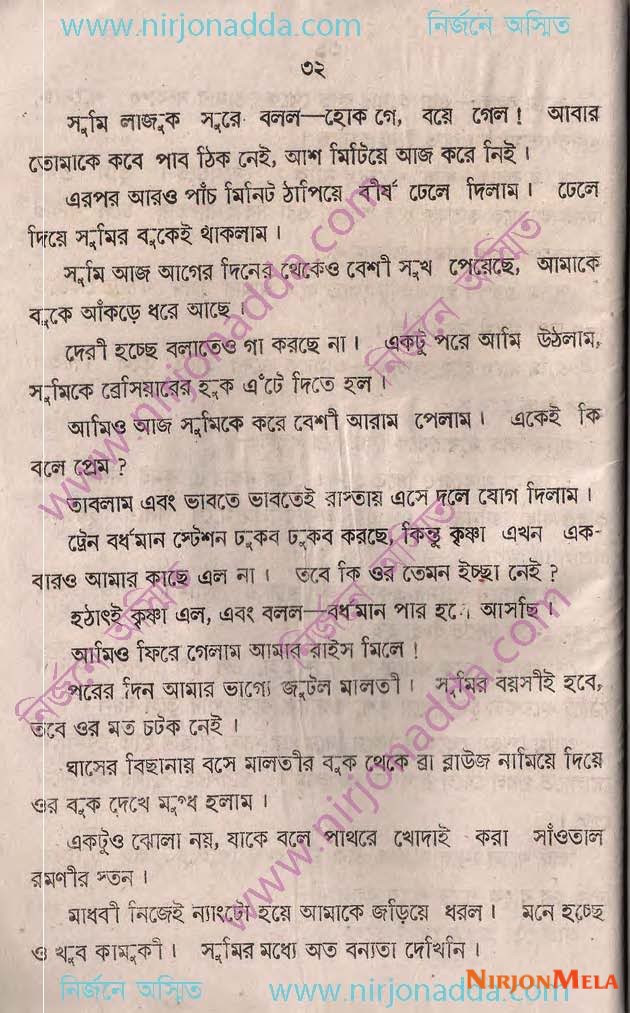 www.nirjonadda.com নির্জনে অস্মিত
৩২
সুমি লাজুক সুরে বলল—হোক গে, বয়ে গেল ! আবার
তোমাকে কবে পাব ঠিক নেই, আশ মিটিয়ে আজ করে নিই ।
এরপর আরও পাঁচ মিনিট ঠাপিয়ে বীর্য ঢেলে দিলাম । ঢেলে
দিয়ে সুমির বুকেই থাকলাম ।
সুমি আজ আগের দিনের থেকেও বেশী সুখ পেয়েছে, আমাকে
বুকে আঁকড়ে ধরে আছে ।
দেরী হচ্ছে বলাতেও গা করছে না । একটু পরে আমি উঠলাম,
সুমিকে ব্রেসিয়ারের হুক এঁটে দিতে হল ।
আমিও আজ সুমিকে করে বেশী আরাম পেলাম । একেই কি
বলে প্রেম ?
ভাবলাম এবং ভাবতে ভাবতেই রাস্তায় এসে দলে যোগ দিলাম ।
ট্রেন বর্ধমান স্টেশন ঢুকব ঢুকব করছে, কিন্তু কৃষ্ণা এখন এক-
বারও আমার কাছে এল না । তবে কি ওর তেমন ইচ্ছা নেই ?
হঠাৎই কৃষ্ণা এল, এবং বলল—বর্ধমান পার হয়ে আসছি ।
আমিও ফিরে গেলাম আমার রাইস মিলে !
পরের দিন আমার ভাগ্যে জুটল মালতী । সুমির বয়সীই হবে,
তবে ওর মত চটক নেই ।
ঘাসের বিছানায় বসে মালতীর বুক থেকে ব্রা ব্লাউজ নামিয়ে দিয়ে
ওর বুক দেখে মুগ্ধ হলাম ।
একটুও ঝোলা নয়, যাকে বলে পাথরে খোদাই করা সাঁওতাল
রমণীর স্তন ।
মাধবী নিজেই ন্যাংটো হয়ে আমাকে জড়িয়ে ধরল । মনে হচ্ছে
ও খুব কামুকী । সুমির মধ্যে অত বন্যতা দেখিনি ।
NIRJONMELA
নির্জনে অস্মিত www.nirjonadda.com
www.nirjonadda.com
নির্জনে অস্মিত
নির্জনে অস্মিত
নির্জনে অস্মিত
www.nirjonadda.com